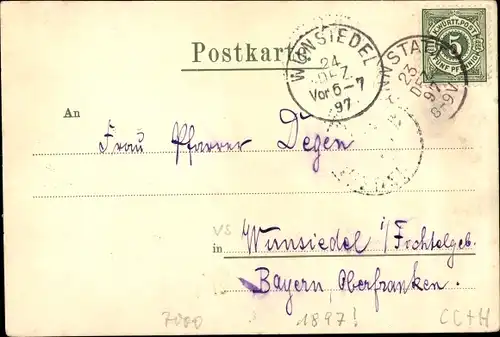 Postkarte
K. WÜRTT. POST
5
FÜNF PFENNIG
WUNSIEDEL
24
DEZ.
Vor 6-7
97
23
DEZ
97
8-9V
An
Frau Pfarrer Degen
VS
in Wunsiedel i/Fichtelgeb.
Bayern, Oberfranken.
7000
1897!
CC+H